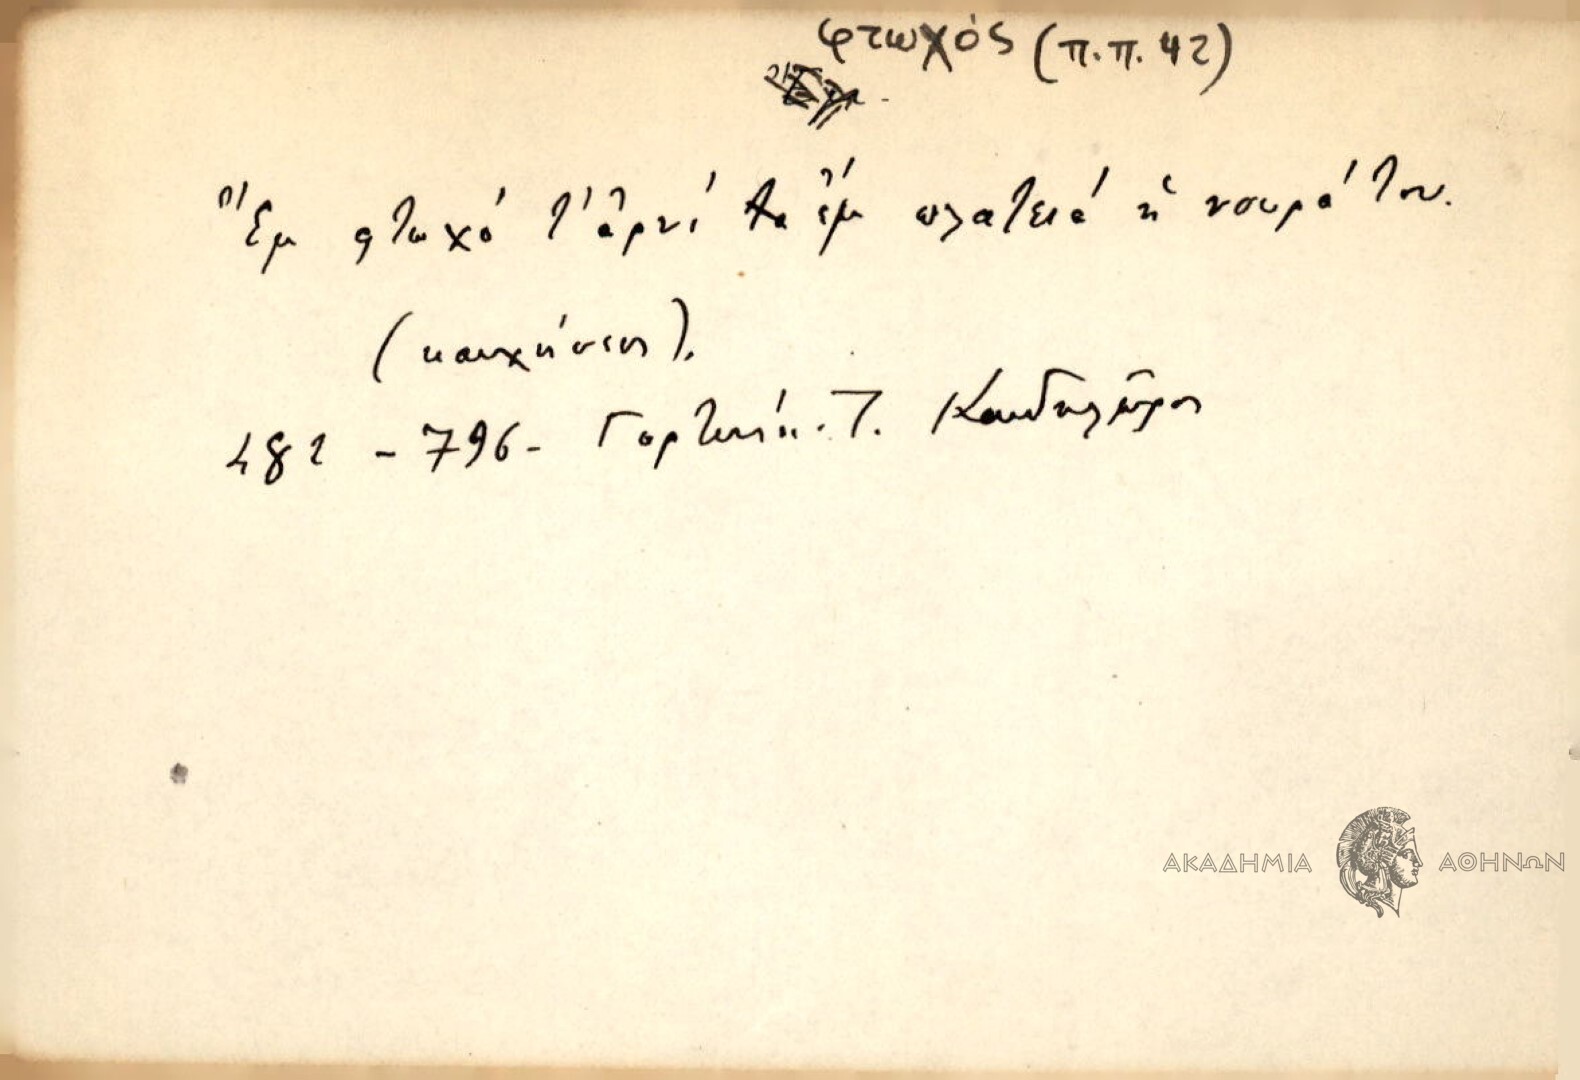 φτωχός (π.π. 42)
Ἔμ φτωχό τ' ἀρνί ἔμ πλατειά ἡ νουρά του.
(καυχήσεις).
482 - 796 - Γορτυνία. Τ. Κανδηλῶρος
ΑΚΑΔΗΜΙΑ ΑΘΗΝΩΝ